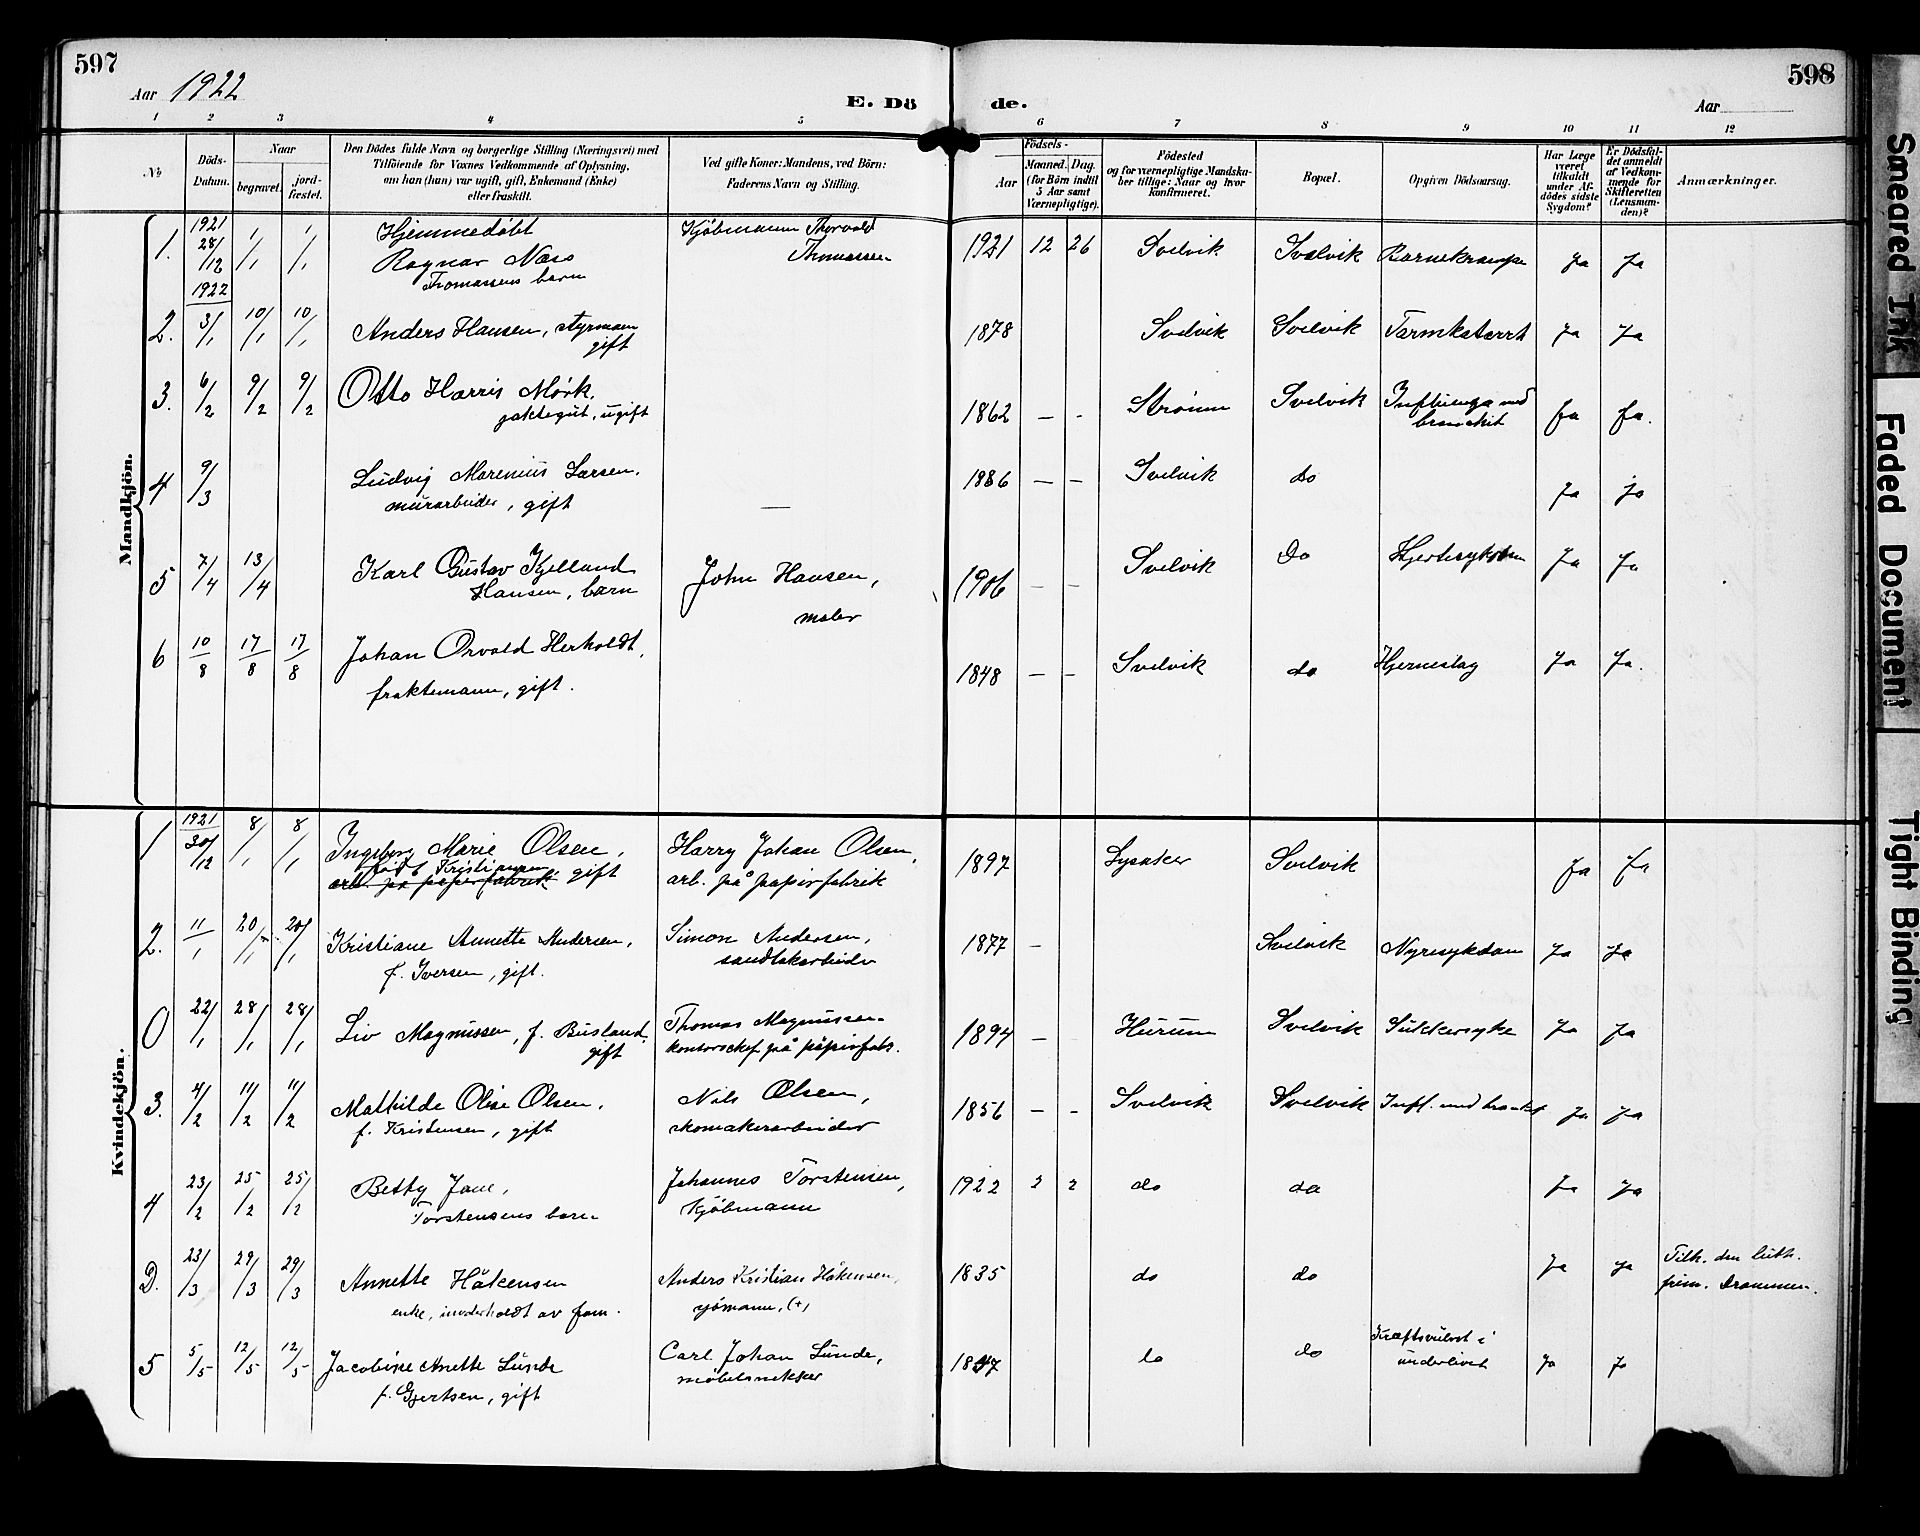 597
598
Aar 1922
E. Dö de.
Aar
1 2 3 4 5 6 7 8 9 10 11 12
No
Döds-
Datum.
Naar
begravet.
jord-
fæstet.
Den Dödes fulde Navn og borgerlige Stilling (Næringsvei) med
Tilföiende for Voxnes Vedkommende af Oplysning,
om han (hun) var ugift, gift, Enkemand (Enke)
eller fraskilt.
Ved gifte Koner: Mandens, ved Börn:
Faderens Navn og Stilling.
Födsels-
Aar
Maaned. Dag.
(for Börn indtil
5 Aar samt
Værnepligtige).
Födested
og for værnepligtige Mandska-
ber tillige: Naar og hvor
konfirmeret.
Bopæl.
Opgiven Dödsaarsag.
Har Læge
været
tilkaldt
under Af-
dödes sidste
Sygdom?
Er Dödsfal-
det anmeldt
af Vedkom-
mende for
Skifteretten
(Lensman-
den)?
Anmærkninger.
Mandkjön.
1. 1921 28/12 1/1 1/1 Hjemmedøbt Kjøbmann Thorvald
Ragnar Næss Thomassen 1921 12 26 Svelvik Svelvik Barnekrampe Ja Ja
Tomassens barn
1922
2. 3/1 10/1 10/1 Anders Hansen, styrmann 1878 Svelvik Svelvik Tarmkatarrh Ja Ja
gift
3. 6/2 9/2 9/2 Otto Harris Mørk. 1862 – - Strømm Svelvik Influenza med Ja Ja.
jaktegut, ugift bronchit
4 9/3 Ludvig Marenius Larsen. 1886 – – Svelvik do Ja ja
murarbeider, gift —
5 7/4 13/4 Karl Gustav Kjelland John Hansen, 1906 – – Svelvik Do Hjertesykdom Ja Ja
Hansen, barn maler
6 10/8 17/8 17/8 Johan Orvald Herholdt, 1848 – – Svelvik do Hjerneslag Ja Ja.
fraktemann, gift.
Kvindekjön.
1 1921 30/12 8/1 8/1 Ingeborg Marie Olsen, Harry Johan Olsen, 1897 Lysaker Svelvik Ja Ja
født Kristiansen
arb. på papirfabrik gift arb. på papirfabrik
2. 11/1 20/1 20/1 Kristiane Annette Andersen, Simon Andersen, 1877 – Svelvik Nyresykdom Ja Ja
f. Iversen, gift. sandtakarbeider
0 22/1 28/1 28/1 Liv Magnussen, f. Busland, Thomas Magnussen 1894 – Hurum Svelvik Sukkersyke Ja Ja
gift kontorschef på papirfabr.
3. 4/2 11/2 11/2 Mathilde Oline Olsen, Nils Olsen, 1856 – - Svelvik Svelvik Infl. med bronkit Ja Ja
f. Kristensen, gift skomakerarbeider
4 23/2 25/2 25/2 Betty Jane, Johannes Torstensen, 1922 2 2 do do Ja Ja
Torstensens barn kjøbmann
D. 23/3 29/3 29/3 Annette Håkensen Anders Kristian Håkensen, 1835 do do Ja Ja Tilh. den luth.
enke, underholdt av fam. sjømann, (+) frim. Drammen.
5 5/5 12/5 12/5 Jacobine Anette Lunde Carl Johan Lunde, 1847 do do Kræftsvulst i Ja Ja
f. Gjertsen, gift møbelsnekker underlivet
Smeared Ink
Faded Document
Tight Binding